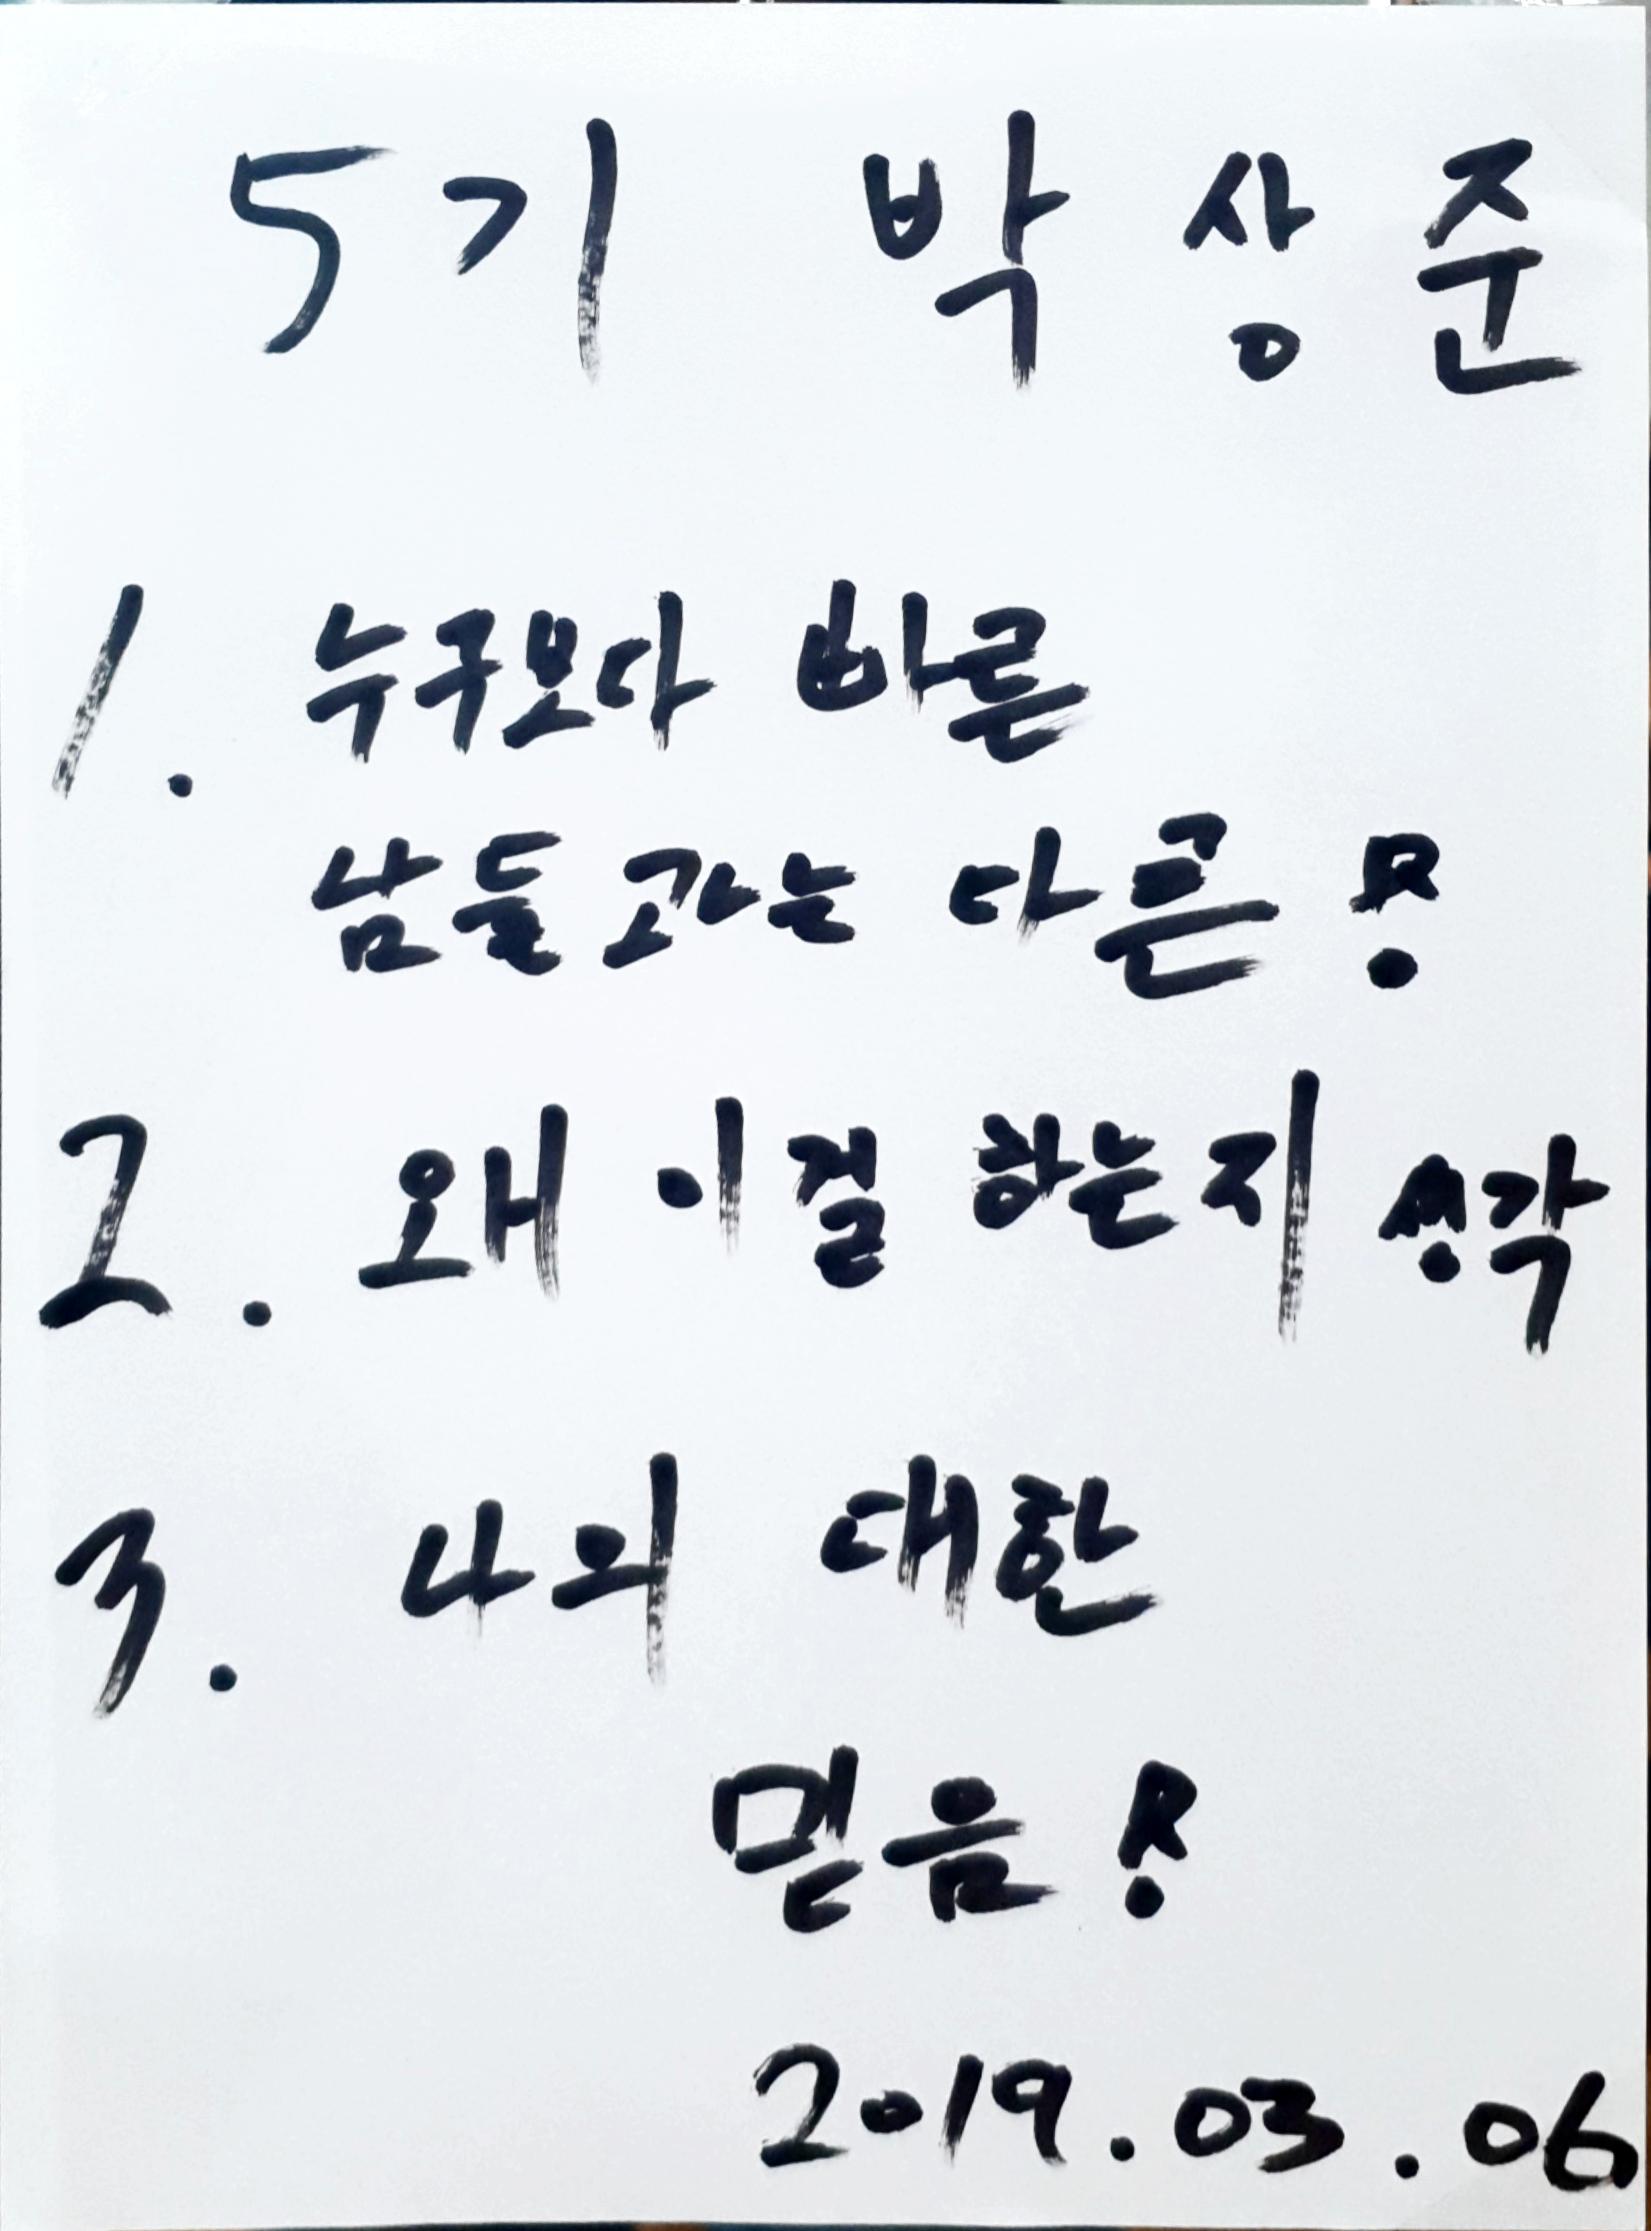 5기 박상준
1. 누구보다 빠른
남들과는 다른!
2. 왜 이걸 하는지 생각
3. 나의 대한
믿음!
2019.03.06